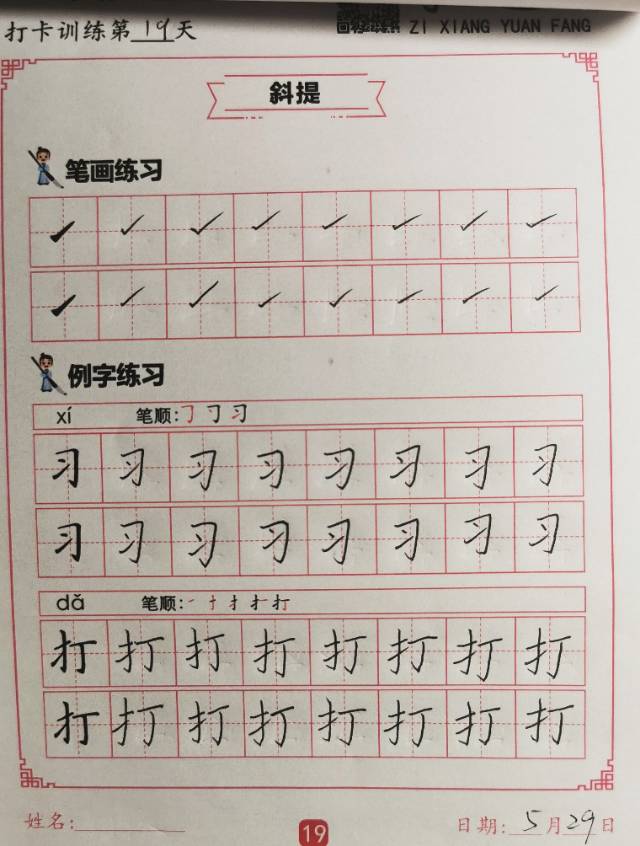 打卡训练第19天
ZI XIANG YUAN FANG
斜提
笔画练习
例字练习
xí 笔顺:㇆ 习
习 习 习 习 习 习 习 习
习 习 习 习 习 习 习 习
dǎ 笔顺:一 十 扌 扌 打
打 打 打 打 打 打 打 打
打 打 打 打 打 打 打 打
姓名:
19
日期: 5月29日